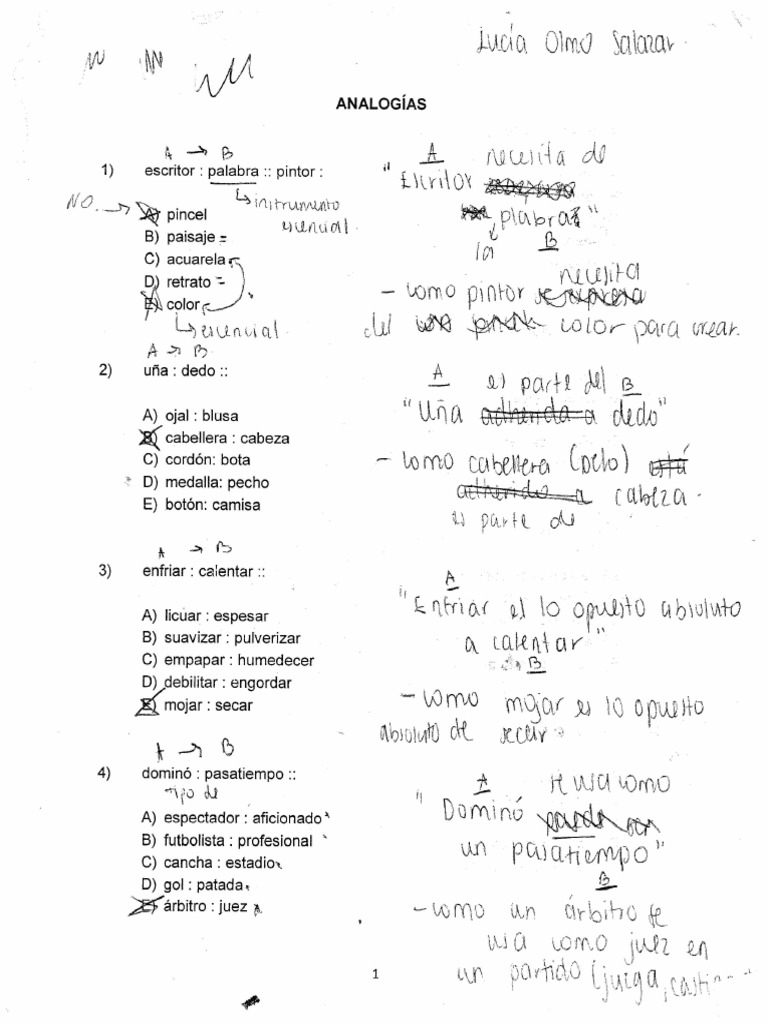 Lucía Olmo Salazar.
ANALOGÍAS
A → B
1) escritor : palabra :: pintor :
instrumento
esencial
NO. →
A) pincel
B) paisaje
C) acuarela
D) retrato
E) color
esencial
A necesita de
"Escritor
plabra"
la B
necesita
- como pintor
del color para crear.
A → B
2) uña : dedo ::
A) ojal : blusa
B) cabellera : cabeza
C) cordón: bota
D) medalla: pecho
E) botón: camisa
A es parte del B
"Uña adherida a dedo"
- como cabellera (pelo) está
adherido a cabeza.
es parte de
A → B
3) enfriar : calentar ::
A) licuar : espesar
B) suavizar : pulverizar
C) empapar : humedecer
D) debilitar : engordar
E) mojar : secar
A
"Enfriar es lo opuesto absoluto
a calentar"
B
- como mojar es lo opuesto
absoluto de secar
A → B
4) dominó : pasatiempo ::
tipo de
A) espectador : aficionado
B) futbolista : profesional
C) cancha : estadio
D) gol : patada
E) árbitro : juez
A se usa como
"Dominó
un pasatiempo"
B
- como un árbitro se
usa como juez en
un partido (juzga,
1